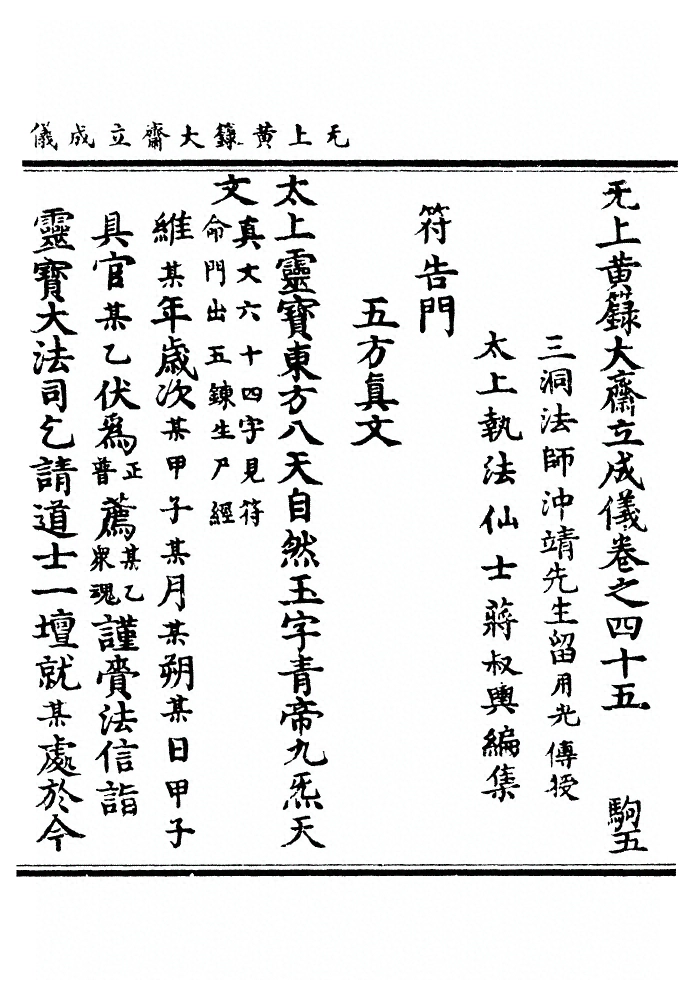 无上黄籙大齋立成儀
无上黄籙大齋立成儀卷之四十五 駒五
三洞法師沖靖先生留用光傳授
太上執法仙士蔣叔輿編集
符告門
五方真文
太上靈寶東方八天自然玉字青帝九炁天
文真文六十四字見符命門出五鍊生尸經
維某年歲次某甲子某月某朔某日甲子
具官某乙伏爲正普薦某乙衆魂謹賫法信詣
靈寶大法司乞請道士一壇就某處於今